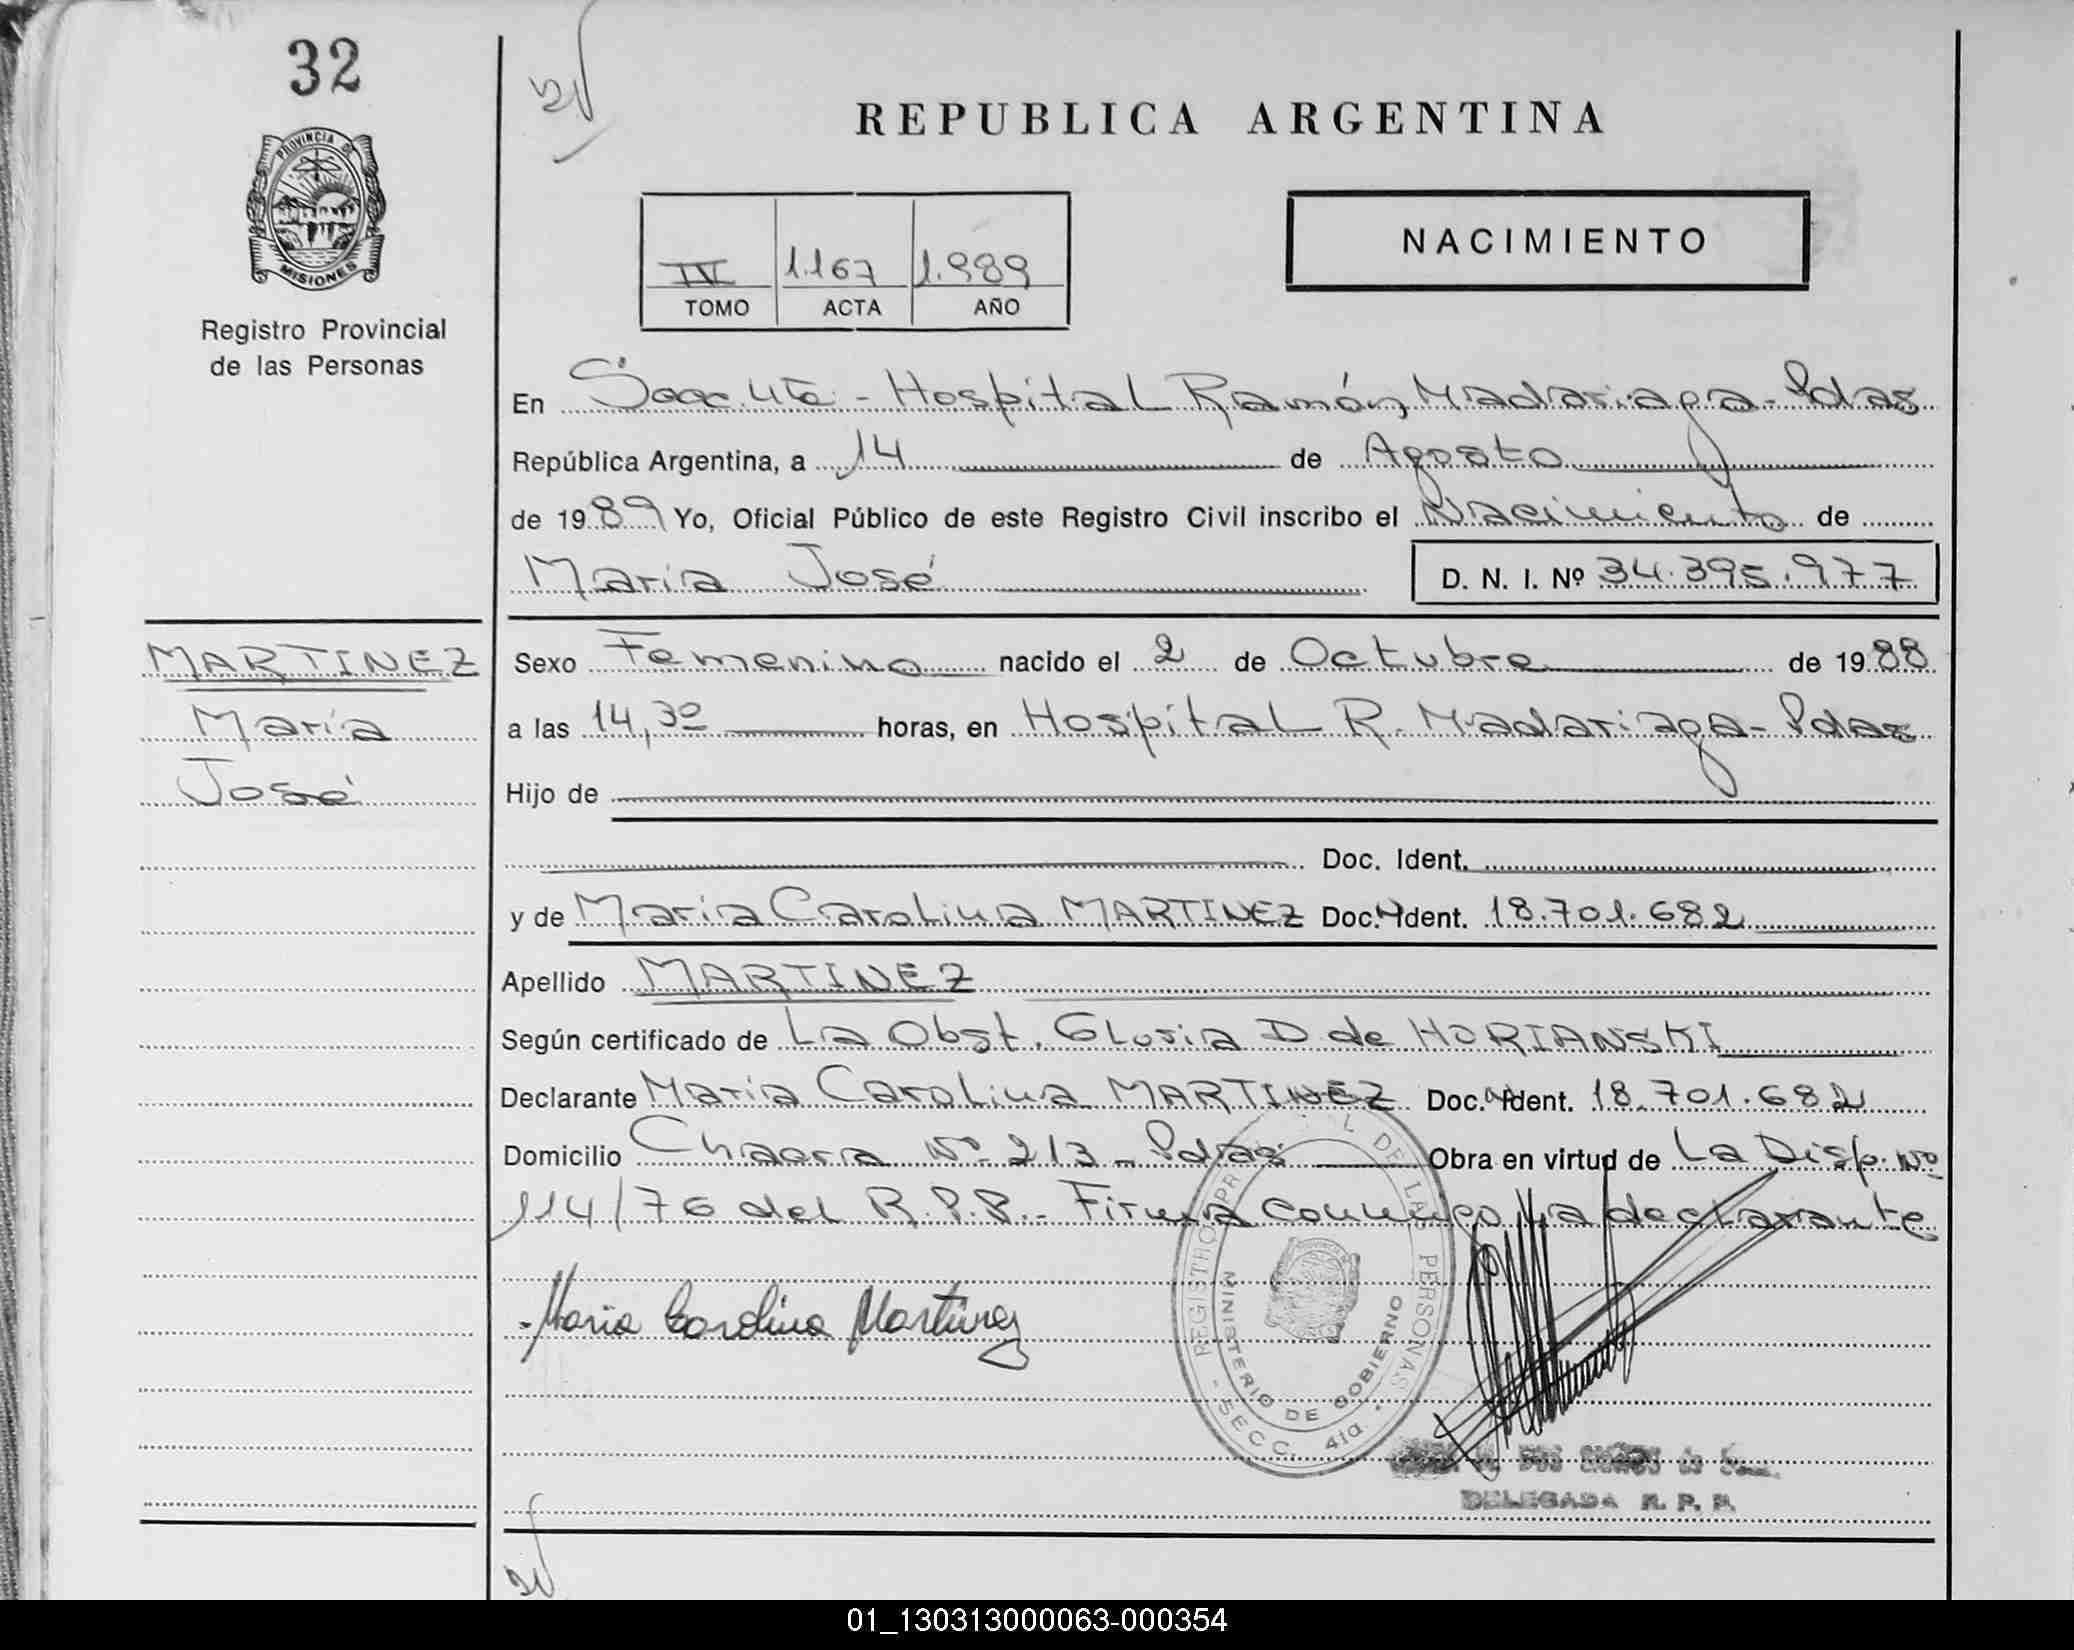 32
REPUBLICA ARGENTINA
PROVINCIA DE
MISIONES
Registro Provincial
de las Personas
IV 1.167 1.989
TOMO ACTA AÑO
NACIMIENTO
En Secc. 4ta - Hospital Ramón Madariaga - Pdas
República Argentina, a 14 de Agosto
de 1989 Yo, Oficial Público de este Registro Civil inscribo el Nacimiento de
María José D. N. I. Nº 34.395.977
MARTINEZ
María
José
Sexo Femenino nacido el 2 de Octubre de 1988
a las 14,30 horas, en Hospital R. Madariaga - Pdas
Hijo de
Doc. Ident.
y de María Carolina MARTINEZ Doc. Ident. 18.701.682
Apellido MARTINEZ
Según certificado de La Obst. Gloria D. de HORIANSKI
Declarante María Carolina MARTINEZ Doc. Ident. 18.701.682
Domicilio Chacra Nº 213 - Pdas Obra en virtud de La Disp. Nº
114/76 del R.P.P. - Firma conmigo la declarante
Maria Carolina Martinez
DE LAS PERSONAS
MINISTERIO DE GOBIERNO
SECC. 4ta.
DELEGADA R. P. P.
01_130313000063-000354